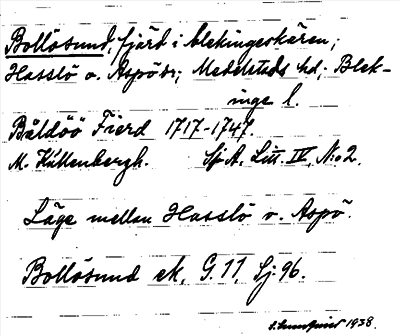 Bollösund, fjärd i blekingeskären;
Hasslö o. Aspö sr; Medelstads hd; Blek-
inge l.
Båldöö Fierd 1717-1747.
M. Küllenbergh. Sj. A. Litt. IV, N:o 2.
Läge mellan Hasslö o. Aspö.
Bollösund ek, G. 11, Sj. 96.
1938.